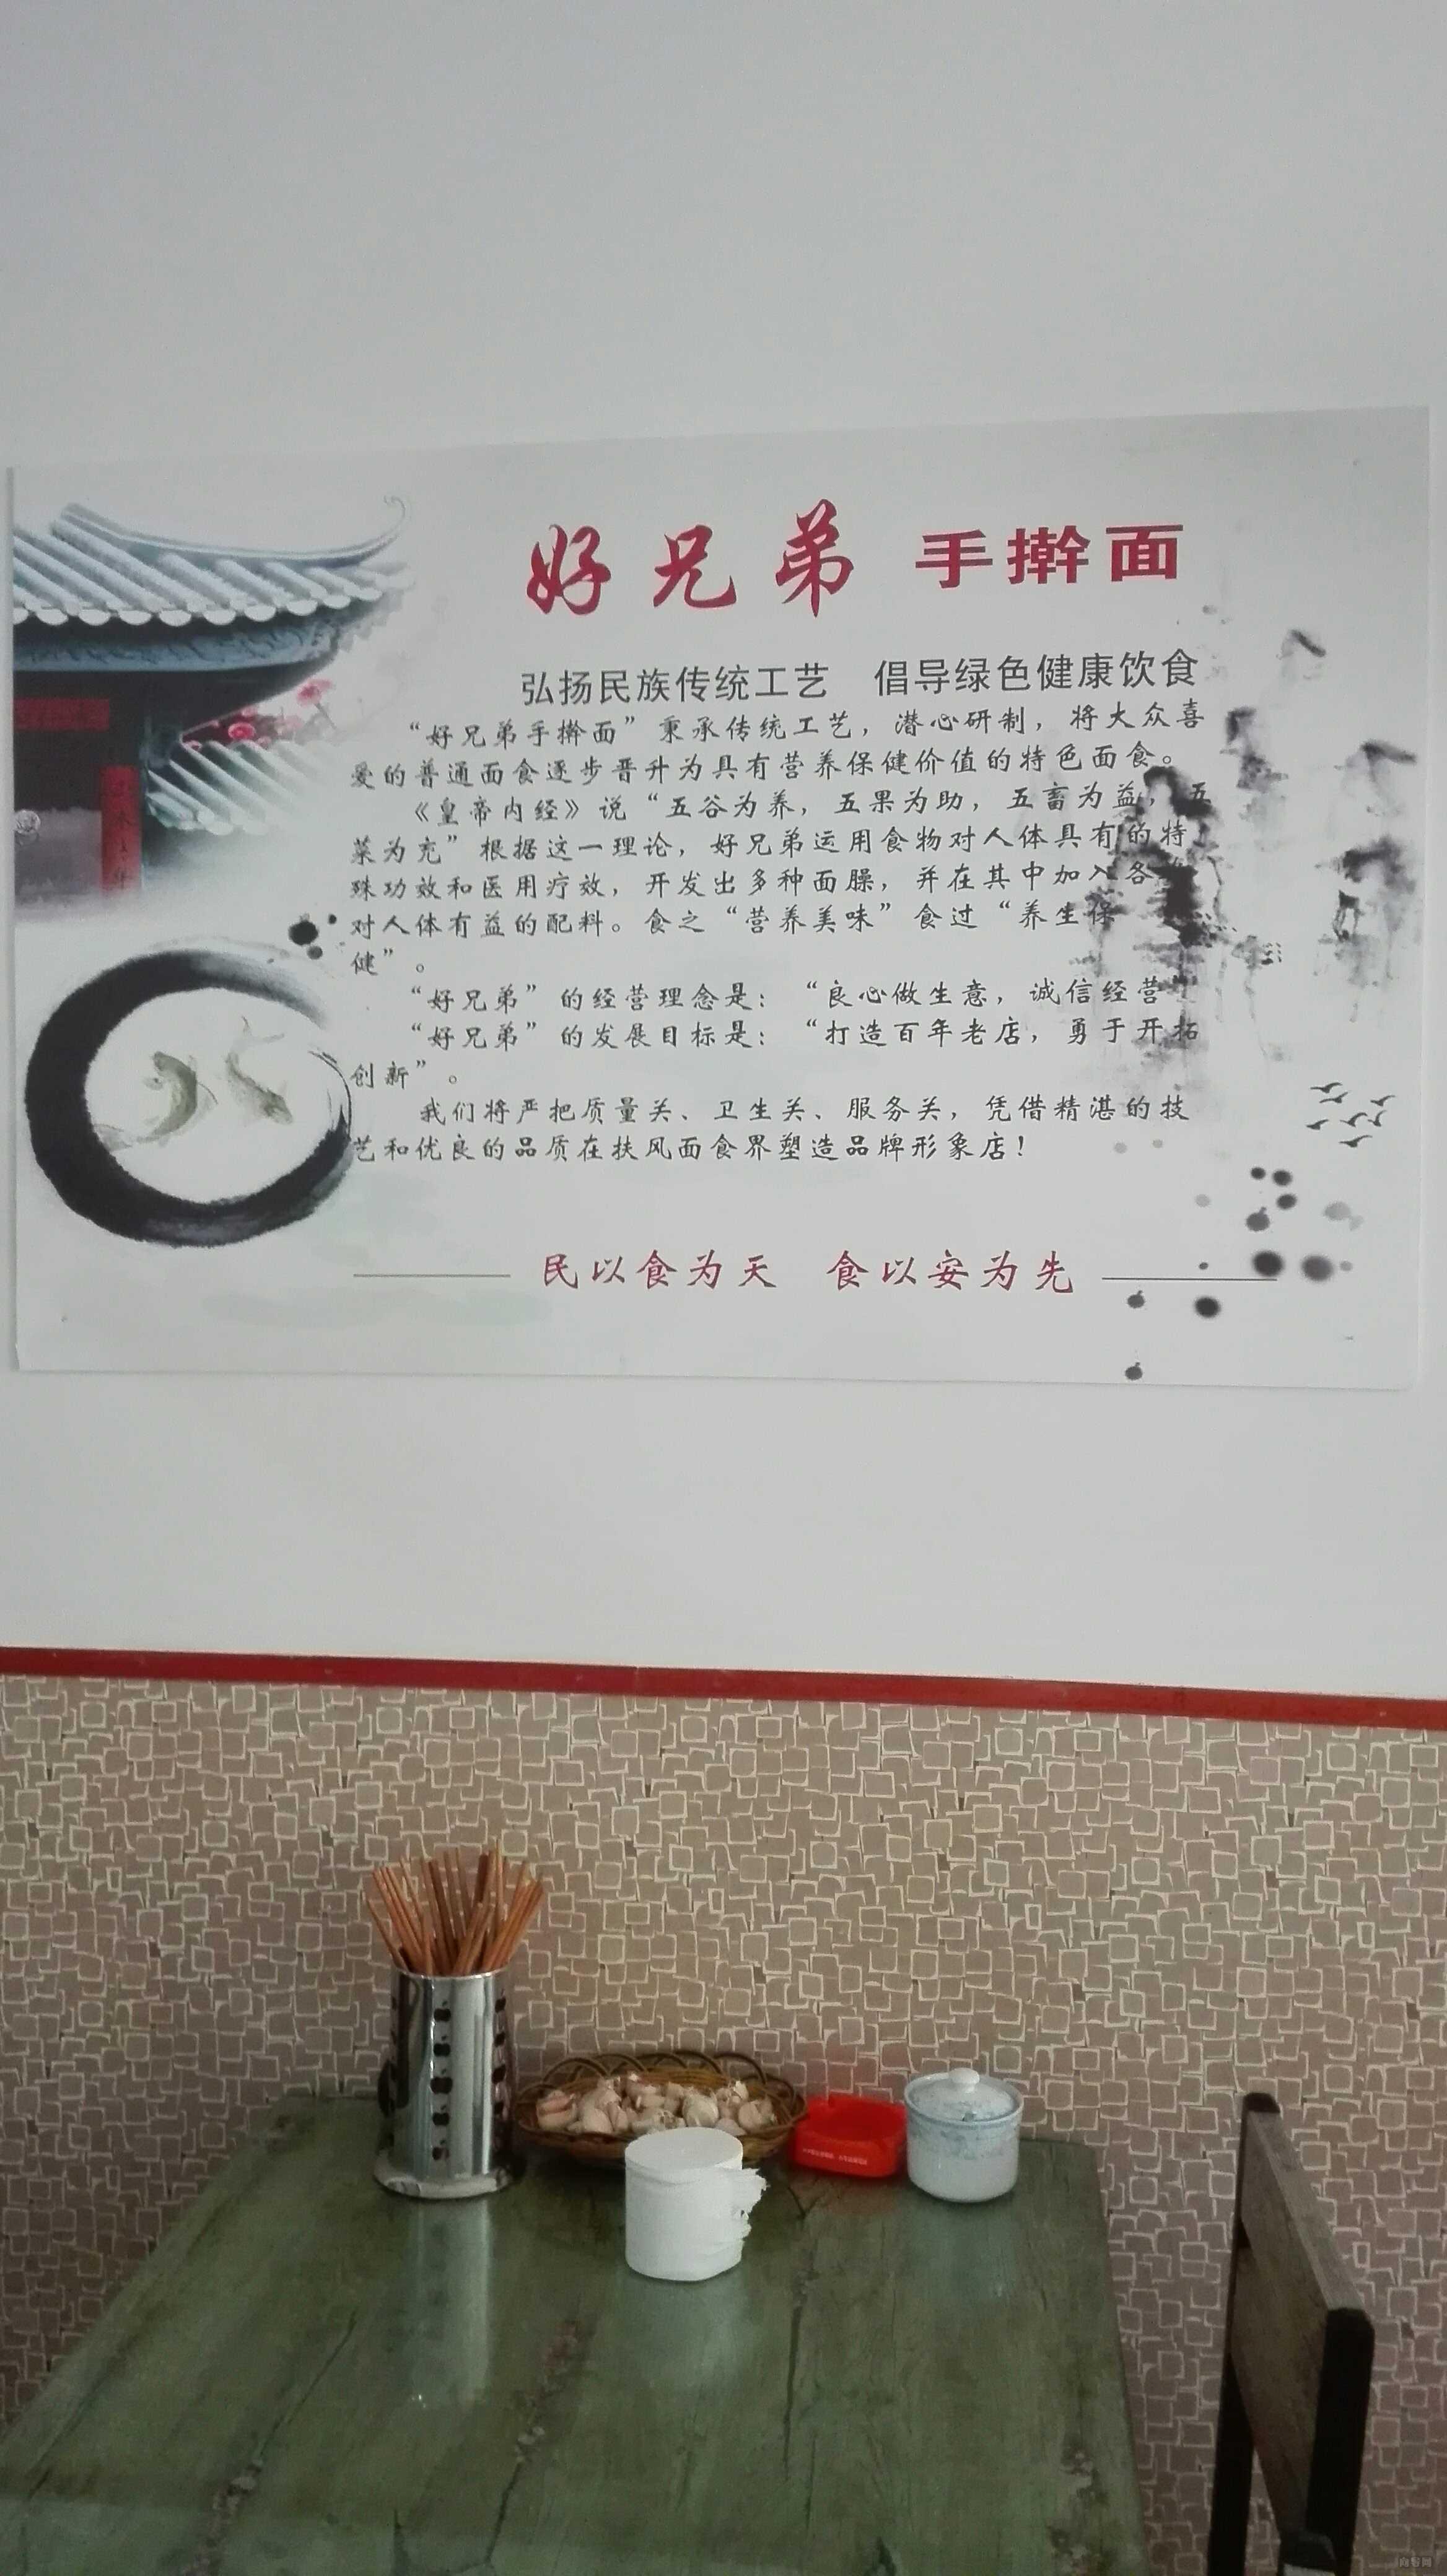 好兄弟 手擀面
弘扬民族传统工艺 倡导绿色健康饮食
“好兄弟手擀面”秉承传统工艺，潜心研制，将大众喜
爱的普通面食逐步晋升为具有营养保健价值的特色面食。
《皇帝内经》说“五谷为养，五果为助，五畜为益，五
菜为充”根据这一理论，好兄弟运用食物对人体具有的特
殊功效和医用疗效，开发出多种面臊，并在其中加入各
对人体有益的配料。食之“营养美味”食过“养生保
健”。
“好兄弟”的经营理念是：“良心做生意，诚信经营”
“好兄弟”的发展目标是：“打造百年老店，勇于开拓
创新”。
我们将严把质量关、卫生关、服务关，凭借精湛的技
艺和优良的品质在扶风面食界塑造品牌形象店！
民以食为天 食以安为先